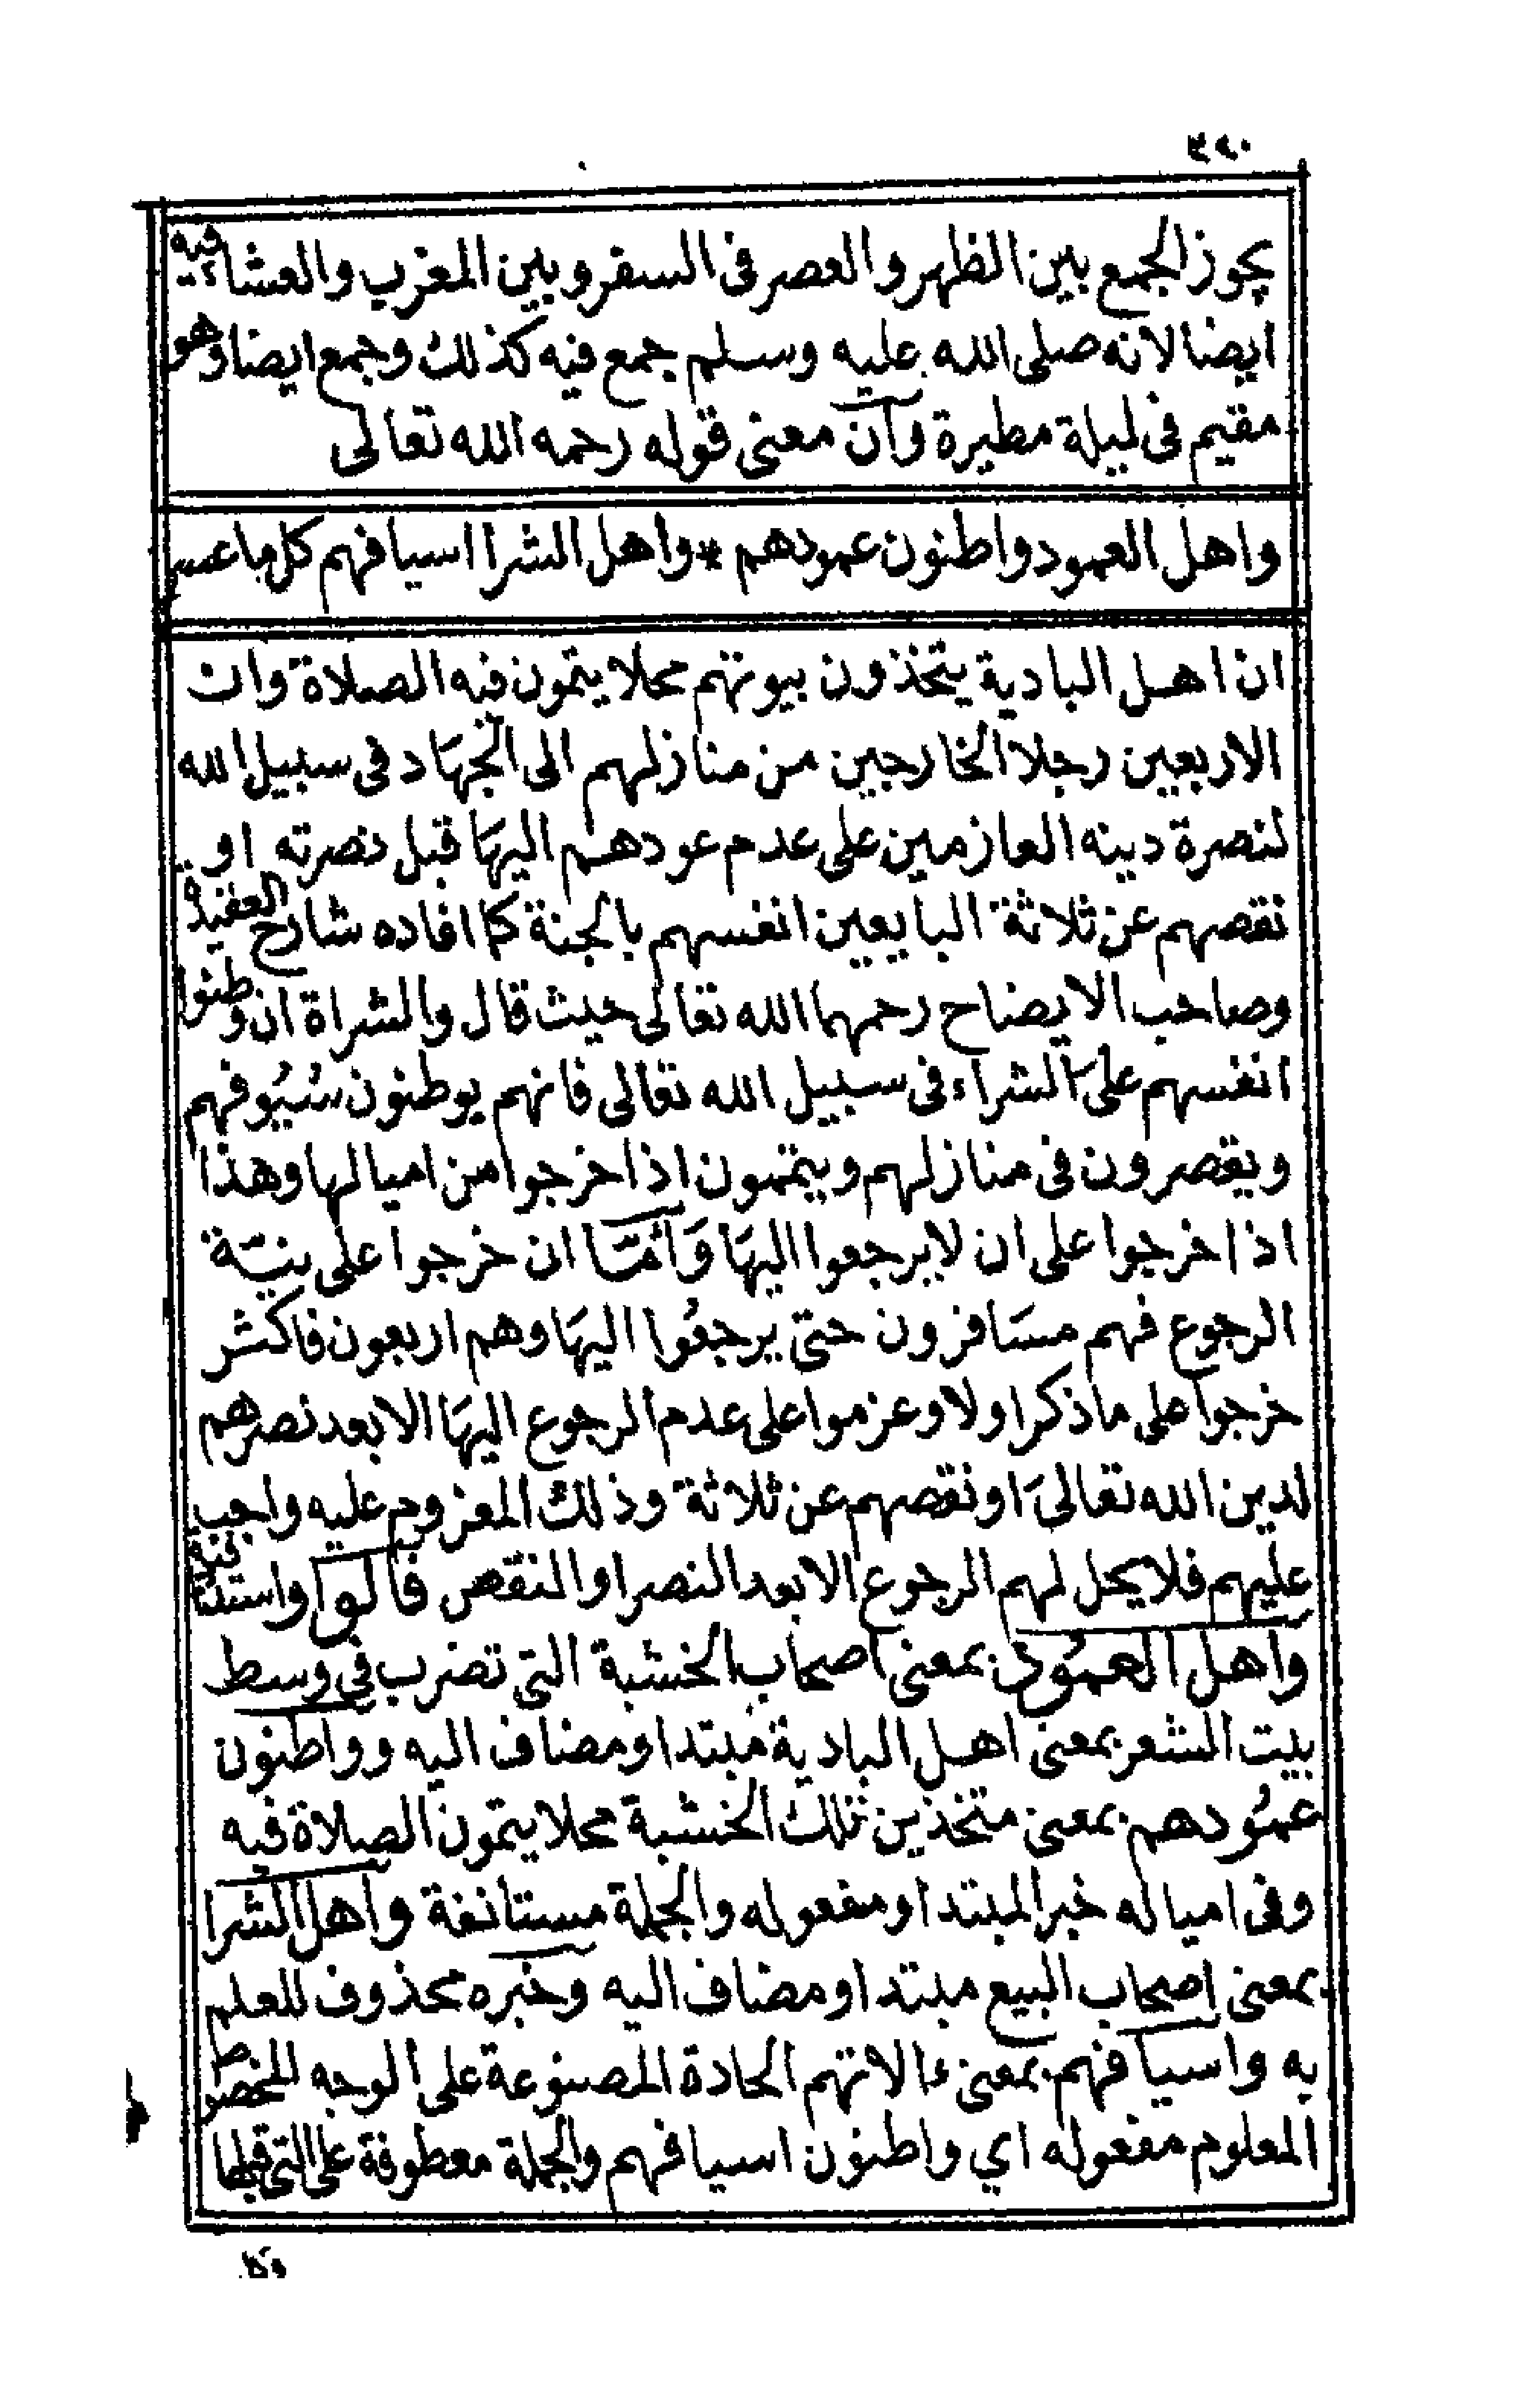 ٣٩٠
يجوز الجمع بين الظهر والعصر فى السفر وبين المغرب والعشا فيه
ايضا لانه صلى الله عليه وسلم جمع فيه كذلك وجمع ايضا وهو
مقيم فى ليلة مطيرة وان معنى قوله رحمه الله تعالى
واهل العمود واطنون عمودهم * واهل الشرا اسيافهم كل ما
ان اهل البادية يتخذون بيوتهم محلا يتمون فيه الصلاة وان
الاربعين رجلا الخارجين من منازلهم الى الجهَاد فى سبيل الله
لنصرة دينه العازمين على عدم عودهم اليهَا قبل نصرته او
نقصهم عن ثلاثة البايعين انفسهم بالجنة كما افاده شارح العقيدة
وصاحب الايضاح رحمهما الله تعالى حيث قال والشراة ان وطنوا
انفسهم على الشراء فى سبيل الله تعالى فانهم يوطنون سُيُوفهم
ويقصرون فى منازلهم ويتمون اذا خرجوا من اميالها وهذا
اذا خرجوا على ان لا يرجعوا اليهَا وَامَّا ان خرجوا على نيّة
الرجوع فهم مسَافرون حتى يرجعُوا اليهَا وهم اربعون فاكثر
خرجوا على ما ذكر اولا وعزموا على عدم الرجوع اليهَا الا بعد نصرهم
لدين الله تعالىَ او نقصهم عن ثلاثة وذلك المعزوم عليه واجب
عليهم فلا يحل لهم الرجوع الا بعد النصر او النقص فالواو استئنافية
واهل العمُود بمعنى اصحاب الخشبة التى تضرب فى وسط
بيت الشعر بمعنى اهل البادية مُبتدا ومضاف اليه وواطنون
عمُودهم بمعنى متخذين تلك الخشبة محلا يتمون الصلاة فيه
وفى امياله خبر المبتدا ومفعوله والجملة مستانفة واهل الشرا
بمعنى اصحاب البيع مبتدا ومضاف اليه وخبره محذوف للعلم
به واسيافهم بمعنى ءالاتهم الحادة المصنوعة على الوجه المخصوص
المعلوم مفعوله اي واطنون اسيافهم والجملة معطوفة على التى قبلها